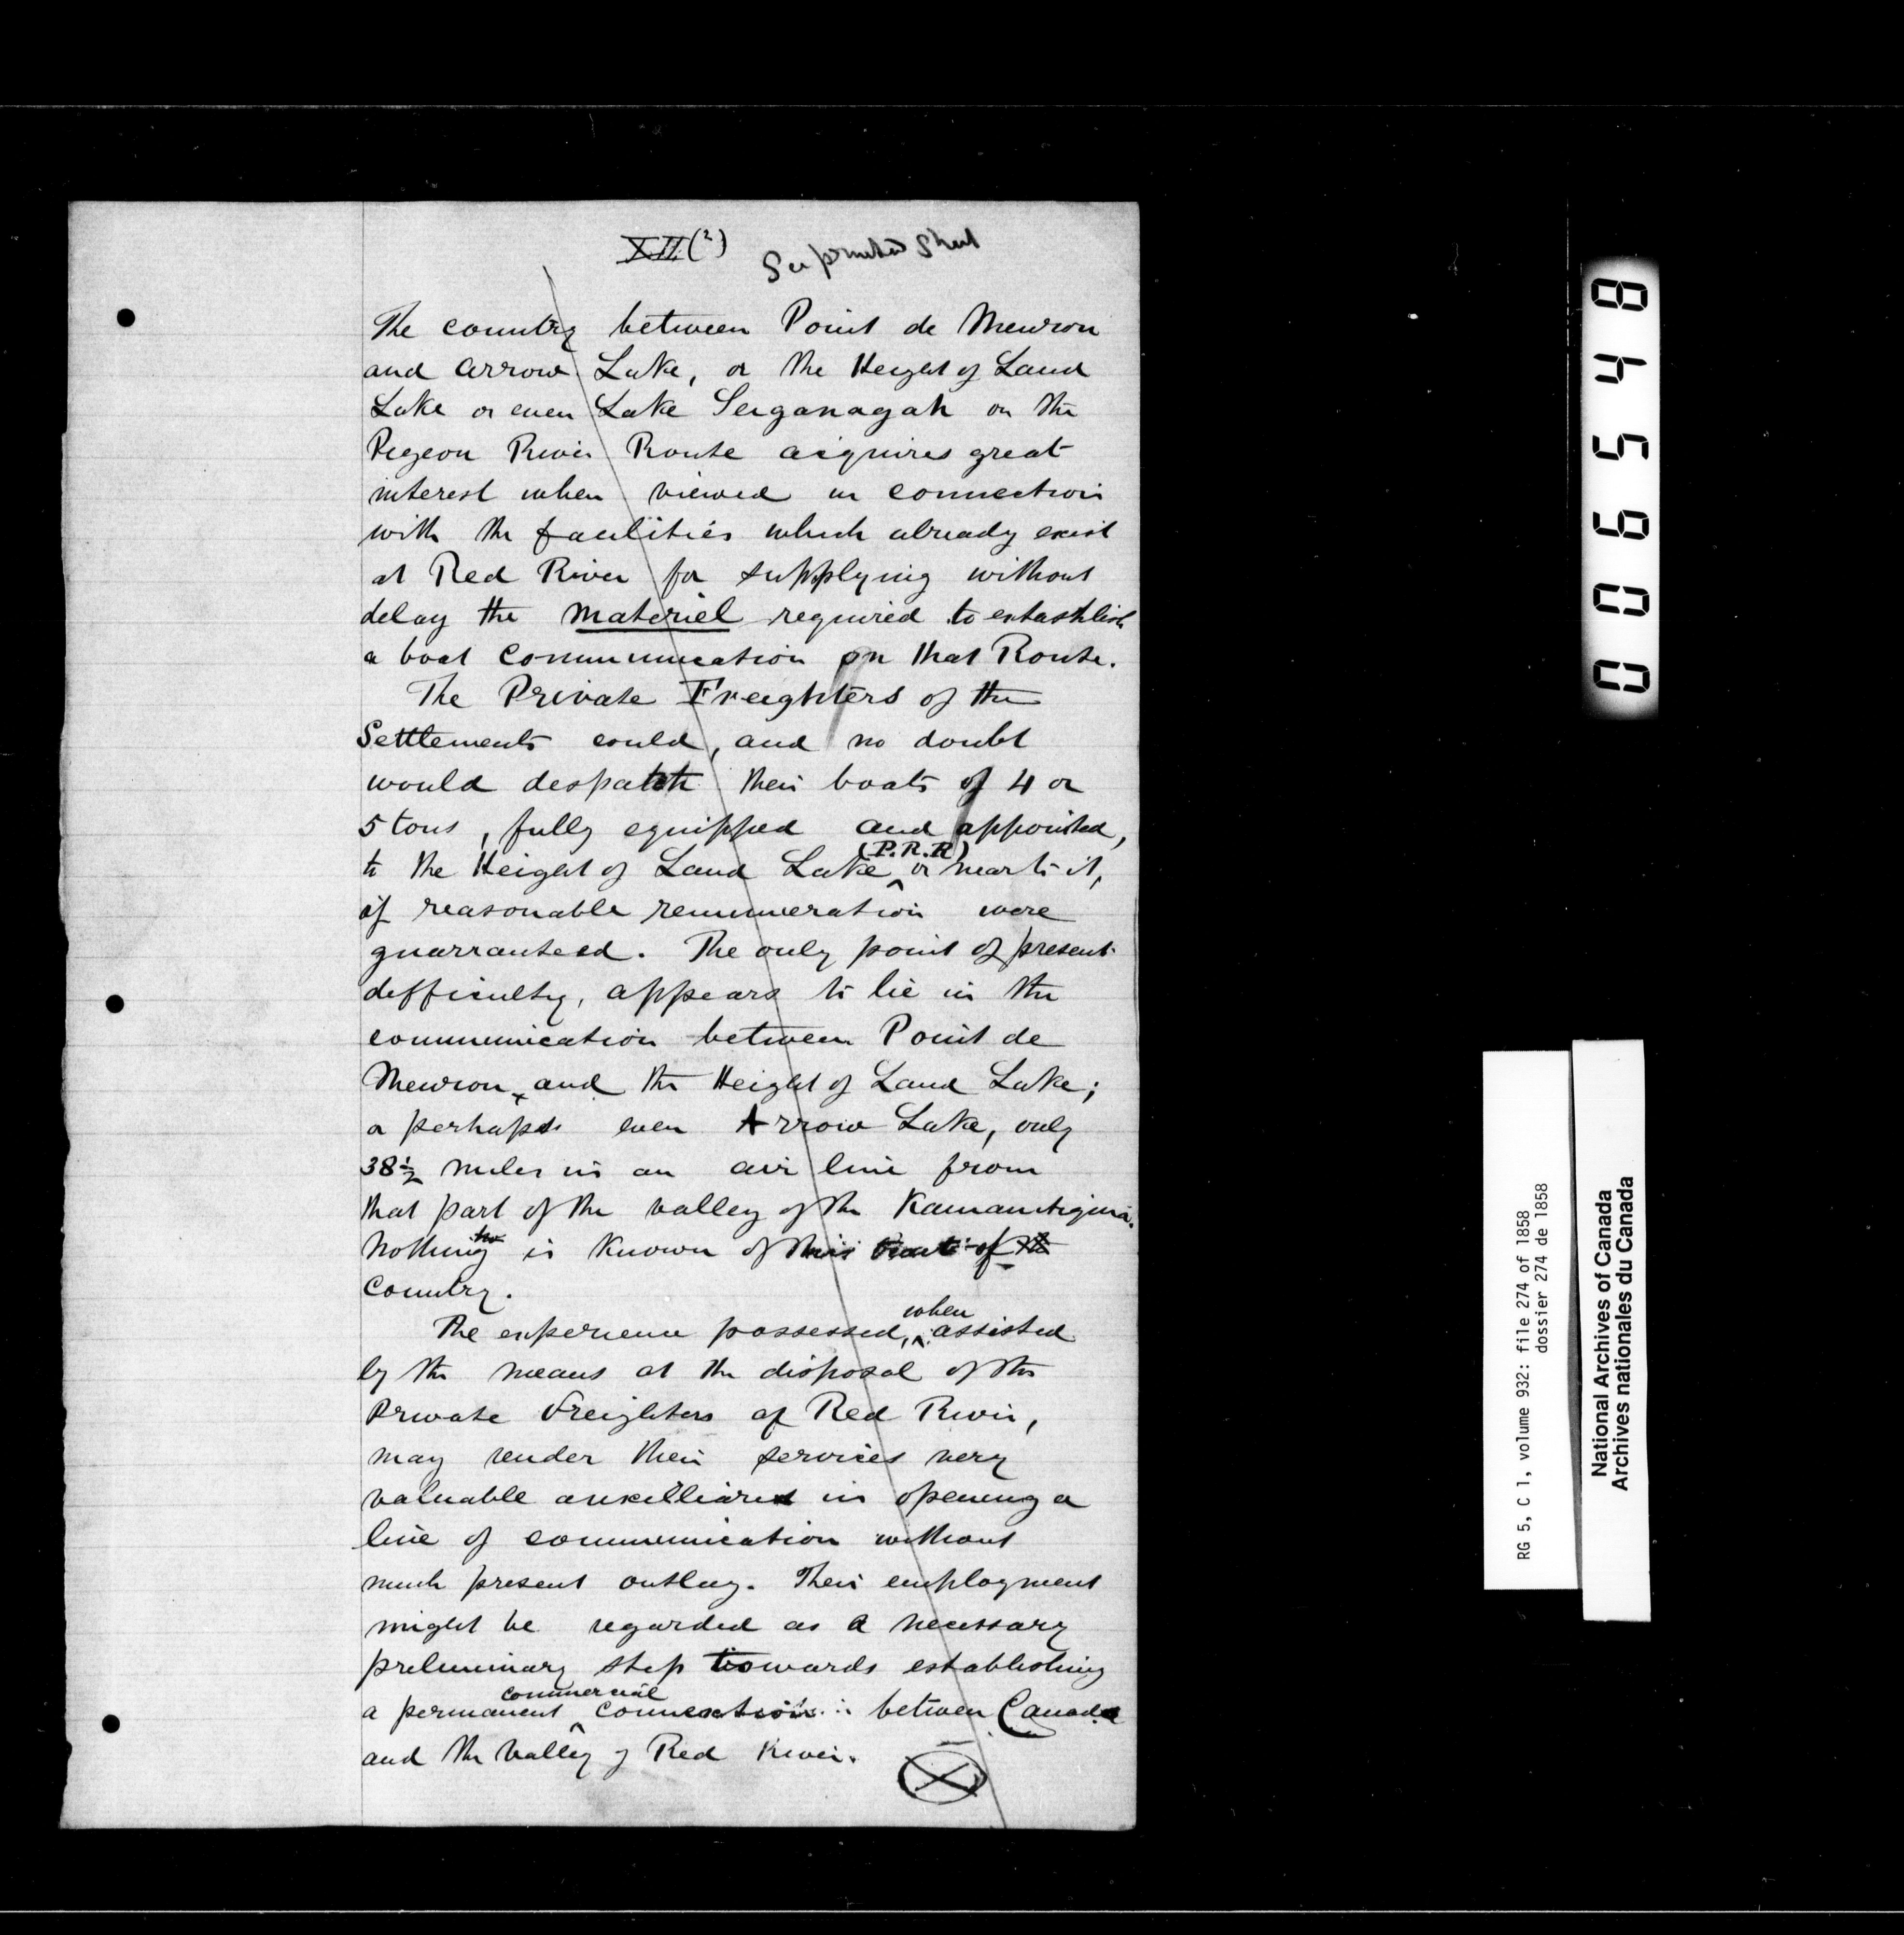 XII (2)
See printed Sheet
The country between Point de Meuron
and Arrow Lake, or the Height of Land
Lake or even Lake Seiganagah on the
Pigeon River Route acquires great
interest when viewed in connection
with the facilities which already exist
at Red River for supplying without
delay the materiel required to establish
a boat communication on that Route.
The Private Freighters of the
Settlements could, and no doubt
would despatch their boats of 4 or
5 tons, fully equipped and appointed,
(P.R.R)
to the Height of Land Lake ^ or near to it,
if reasonable remuneration were
guarranteed. The only point of present
difficulty, appears to lie in the
communication between Point de
Meuron, and the Height of Land Lake;
or perhaps even Arrow Lake, only
38½ miles in an air line from
that part of the valley of the Kamanitiquia.
Nothing is known of this
country.
when
The experience possessed, ^ assisted
by the means at the disposal of the
Private Freighters of Red River,
may render their services very
valuable auxilliaries in opening a
line of communication without
much present outlay. Their employment
might be regarded as a necessary
preliminary step towards establishing
commercial
a permanent ^ connection between Canada
and the Valley of Red River.
006548
RG 5, C 1, volume 932: file 274 of 1858
dossier 274 de 1858
National Archives of Canada
Archives nationales du Canada